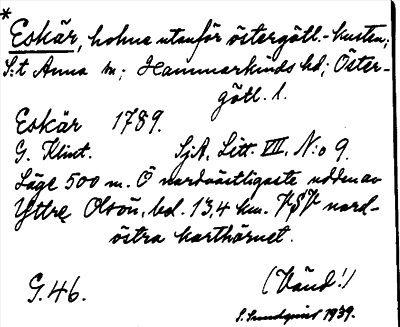 * Eskär, holme utanför östergötl.-kusten;
S:t Anna sn; Hammarkinds hd; Öster-
götl. l.
Eskär 1789.
G. Klint. SjA. Litt. VII. N:o 9.
Läge 500 m. Ö nordvästligaste udden av
Yttre Olsön, bel. 13,4 km. VSV nord-
östra karthörnet.
G. 46. (Vänd!)
S. Sundqvist 1939.